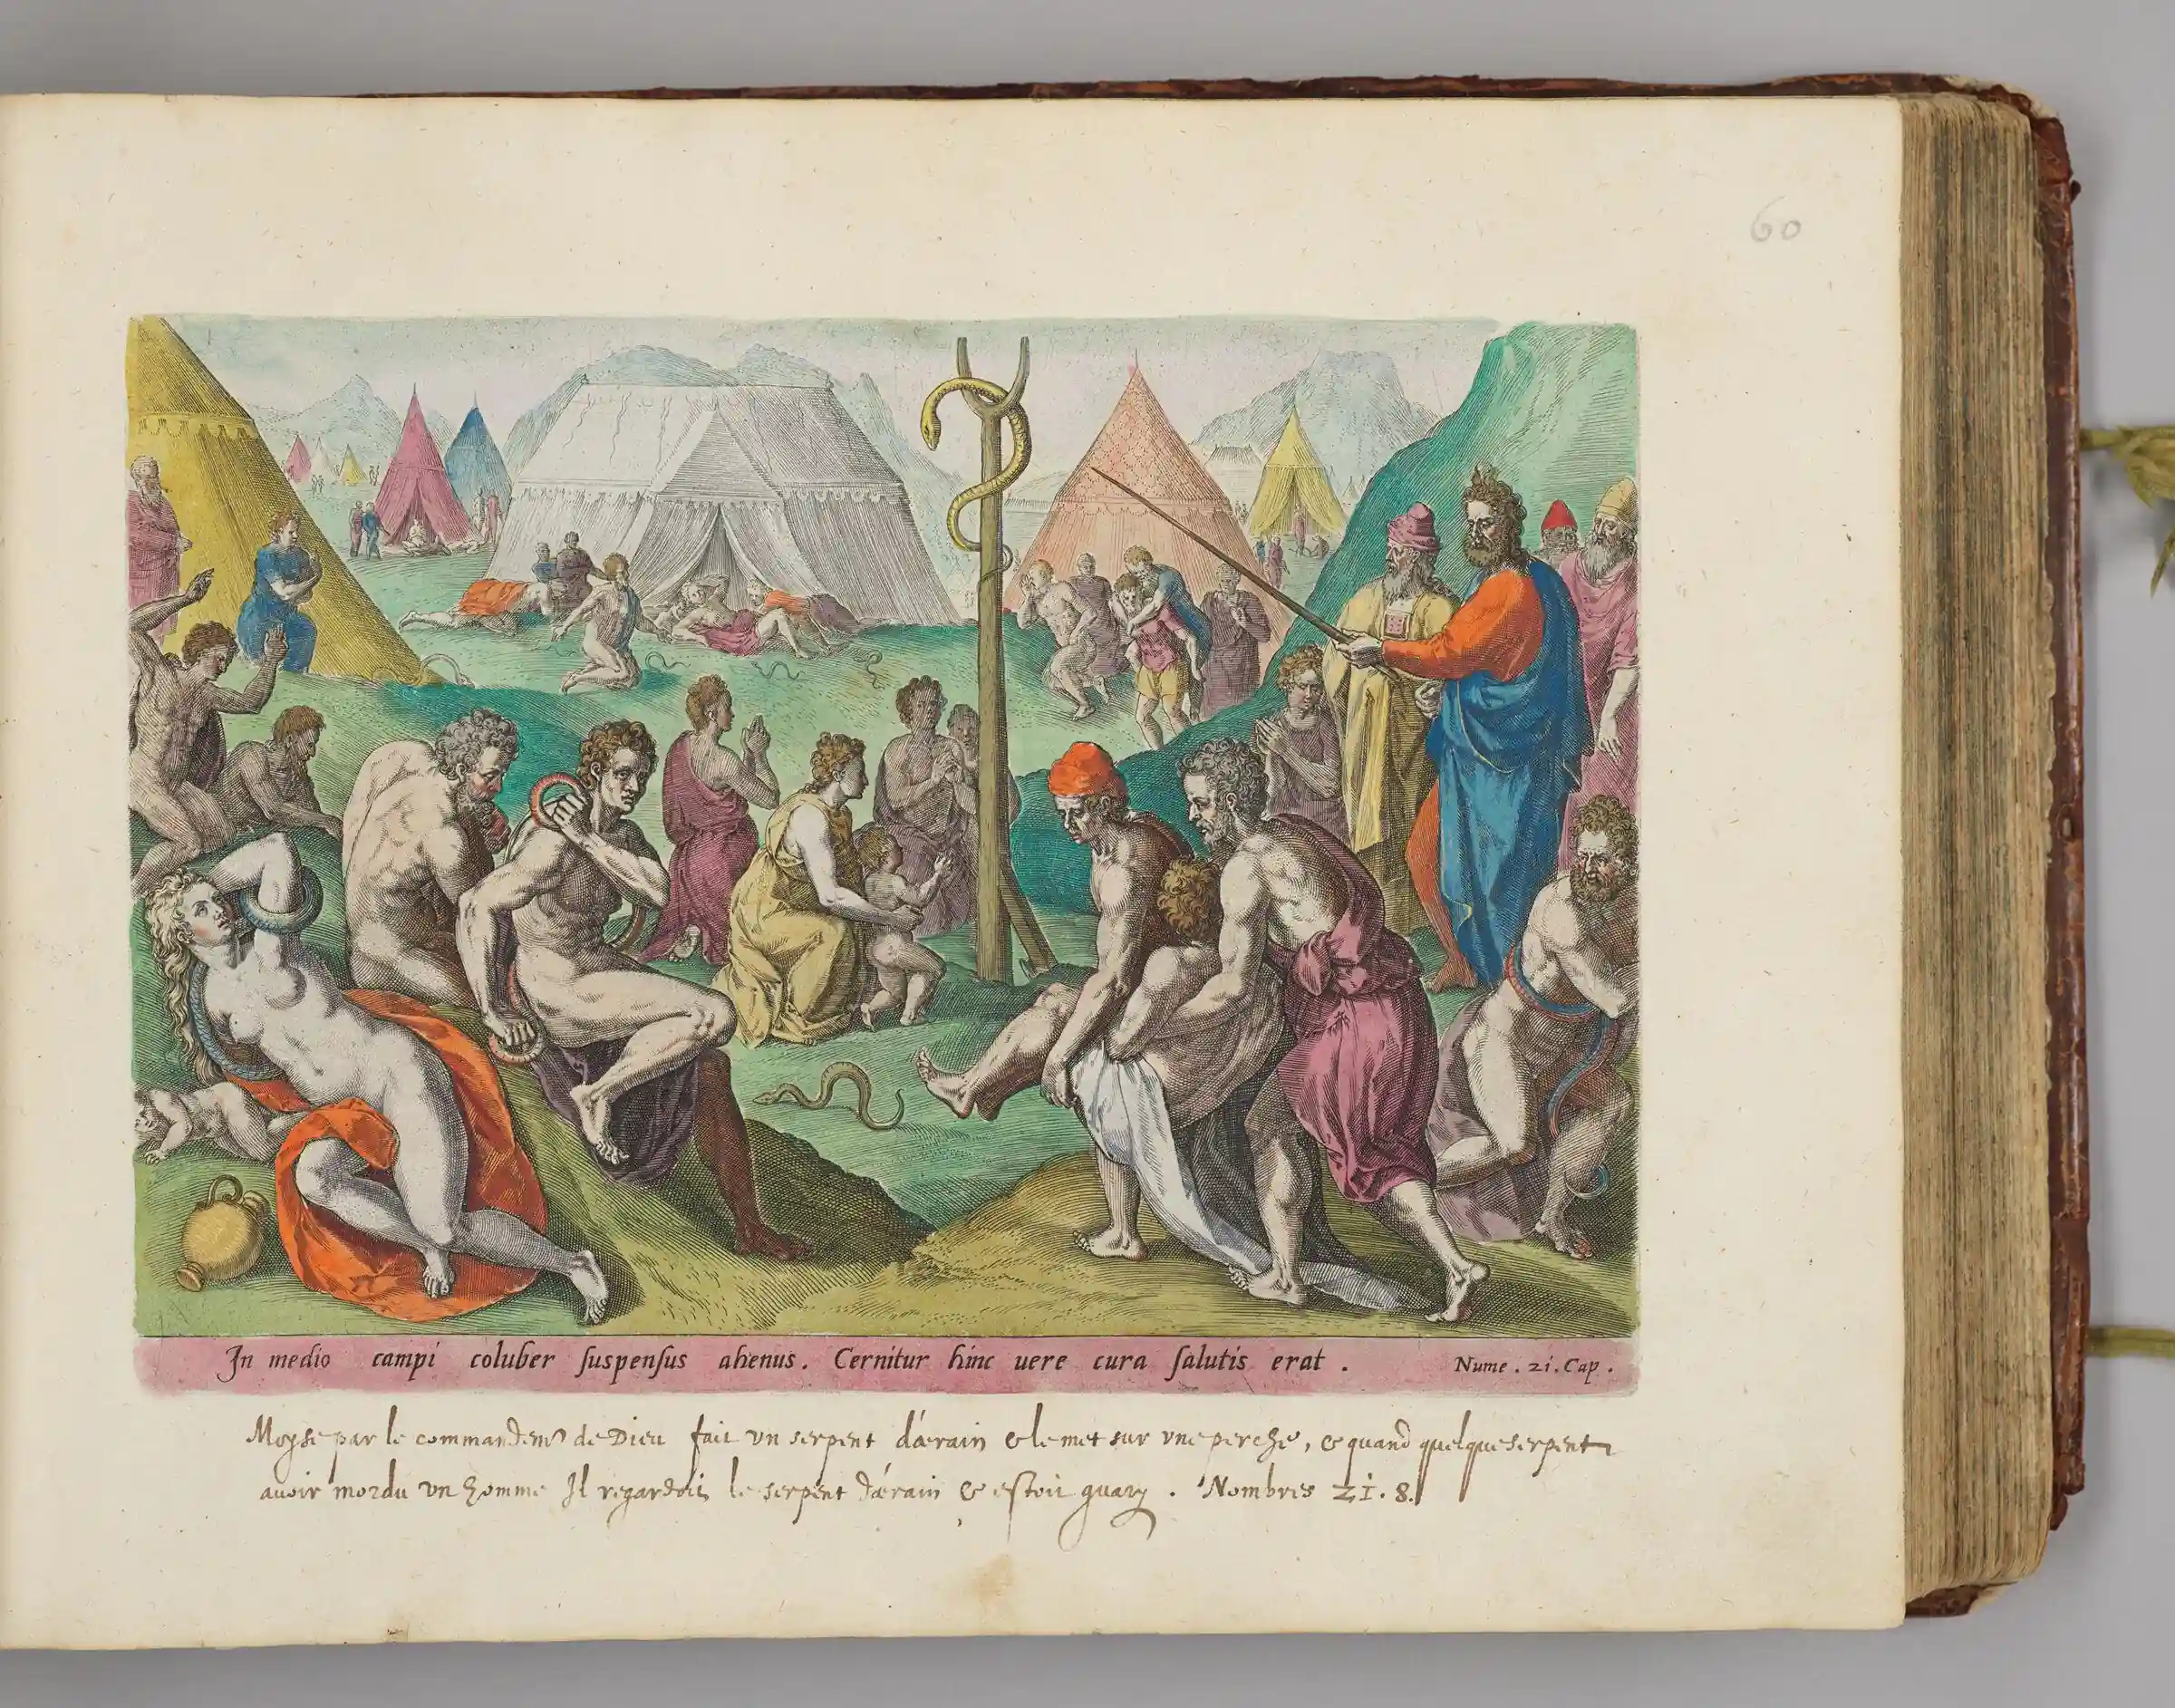 60
In medio campi coluber suspensus ahenus. Cernitur hinc uere cura salutis erat. Nume. 21. Cap.
Moyse par le commandem̃ de Dieu fait vn serpent d'ærain & le met sur vne perche, & quand quelque serpent
auoit mordu vn homme Il regardoit le serpent d'ærain & estoit guary. Nombres 21. 8.